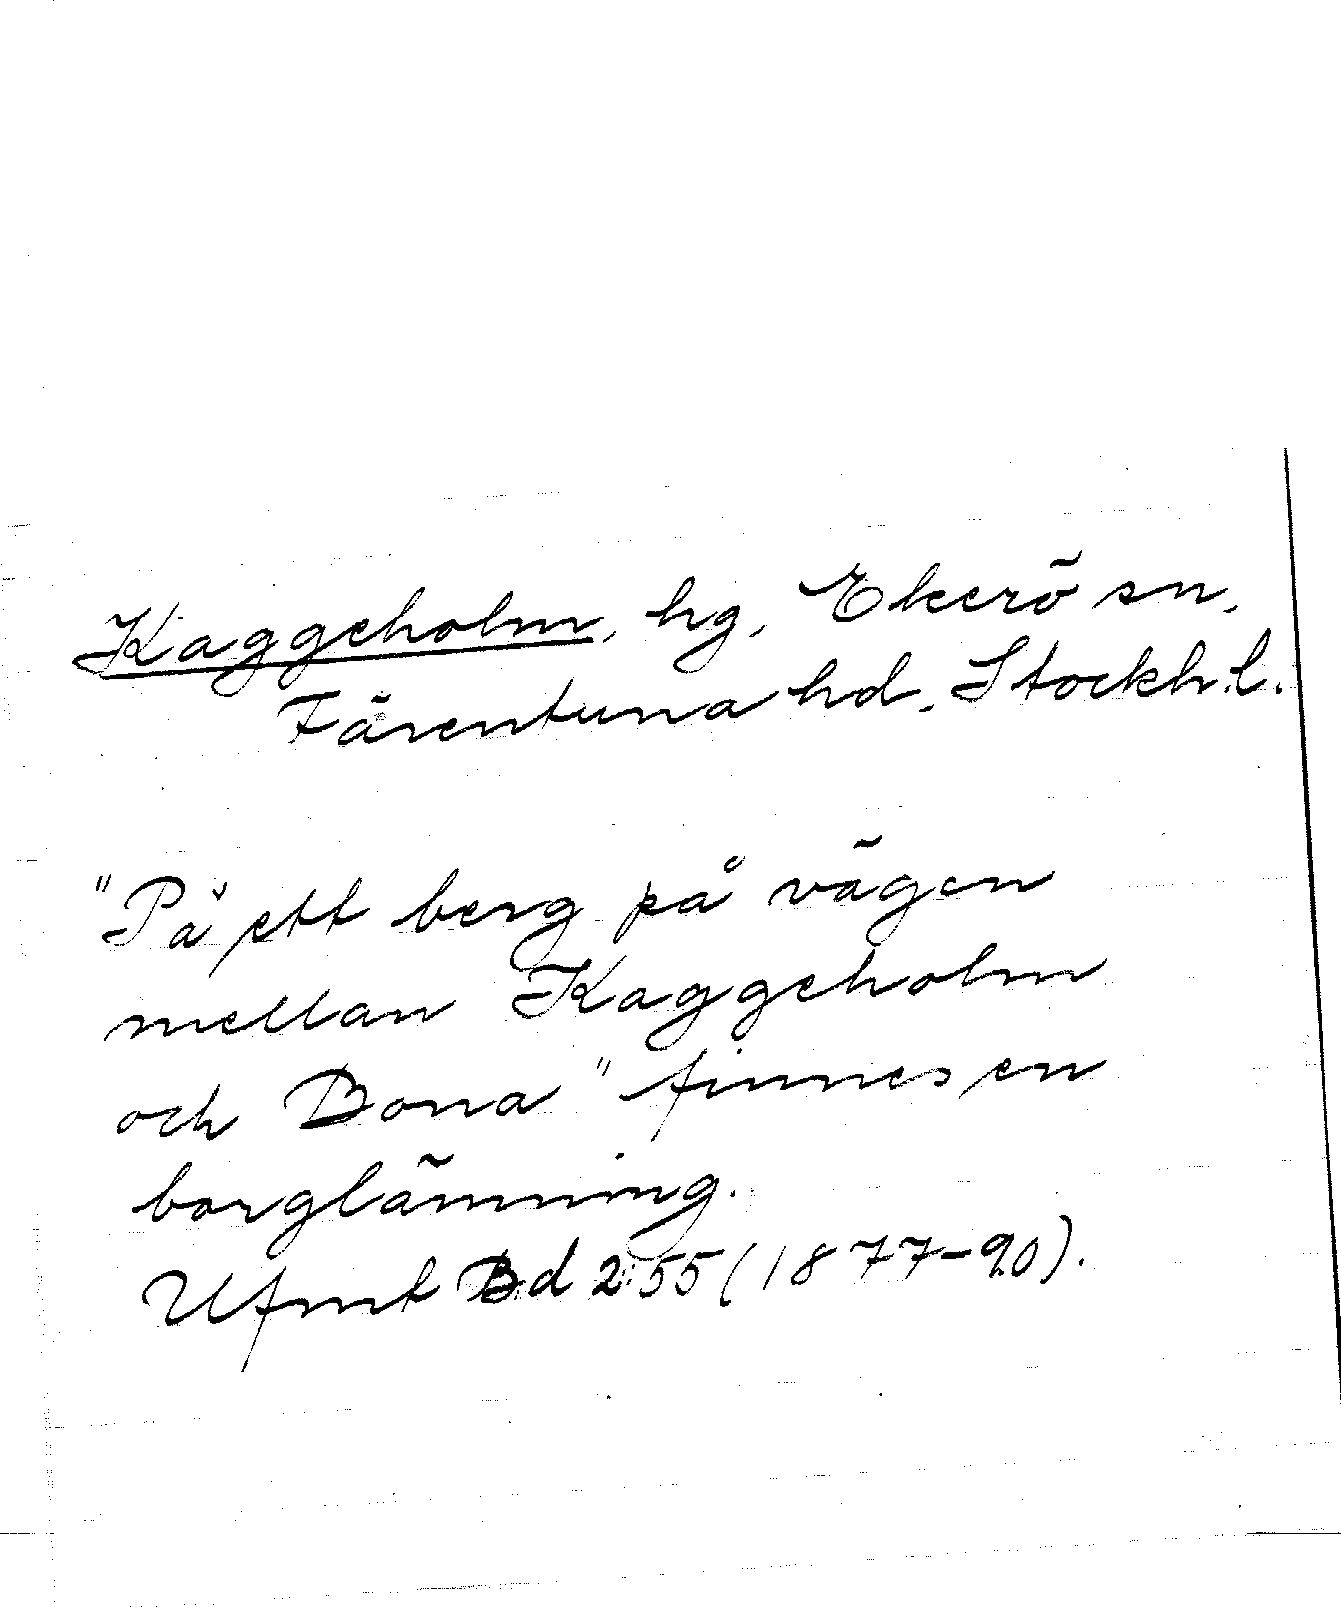 Kaggeholm, hg, Ekerö sn,
Färentuna hd, Stockh.l.
"På ett berg på vägen
mellan Kaggeholm
och Bona" finnes en
borglämning.
Ufmt Bd 2:55 (1877-90).